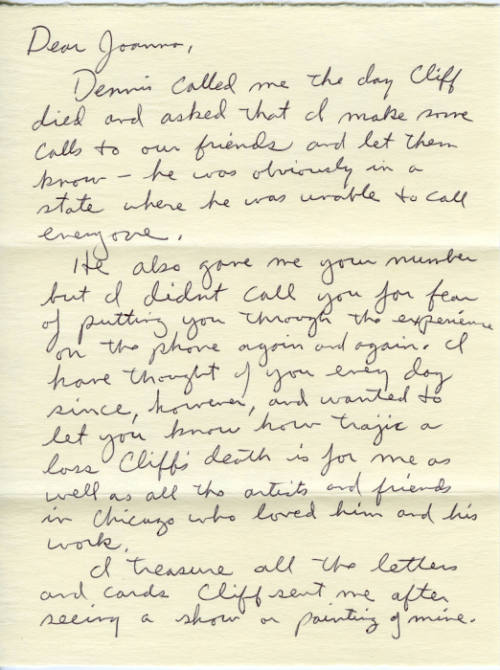 Dear Joanna,
Dennis called me the day Cliff
died and asked that I make some
calls to our friends and let them
know – he was obviously in a
state where he was unable to call
everyone.
He also gave me your number
but I didnt call you for fear
of putting you through the experience
on the phone again and again. I
have thought of you every day
since, however, and wanted to
let you know how trajic a
loss Cliff's death is for me as
well as all the artists and friends
in Chicago who loved him and his
work.
I treasure all the letters
and cards Cliff sent me after
seeing a show or painting of mine.